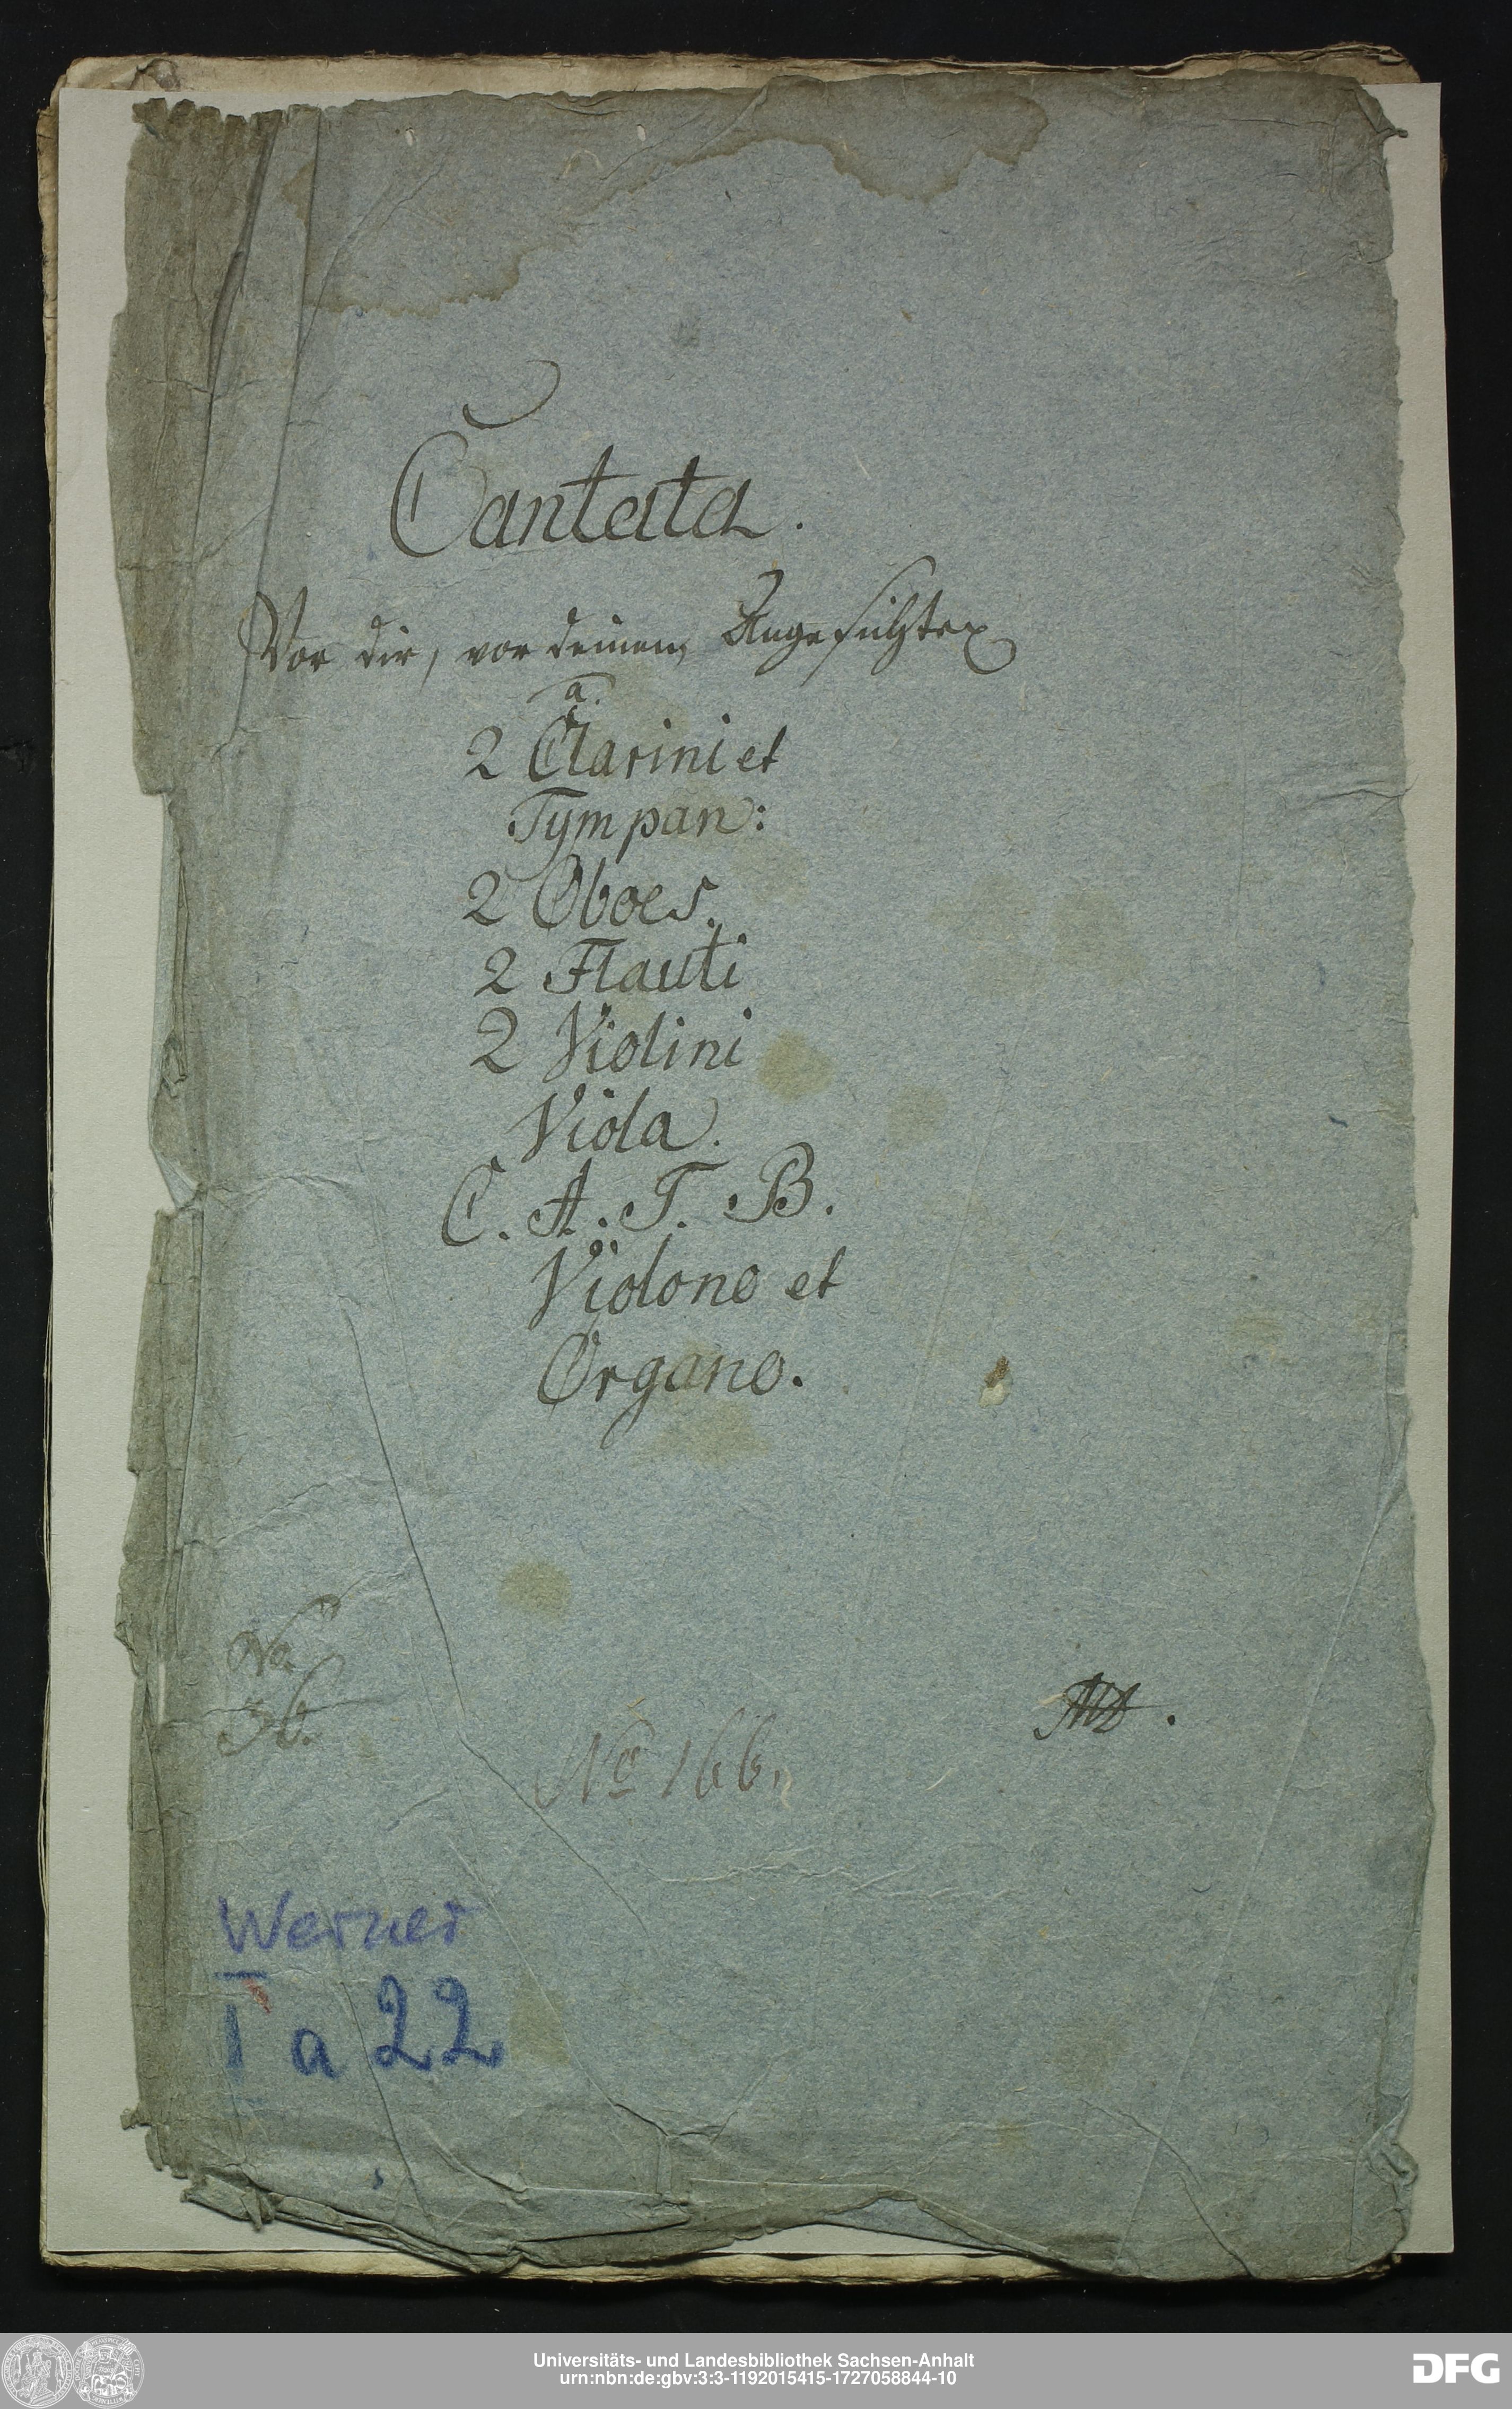 Cantata.
Vor dir, vor deinem Angesichte
a.
2 Clarini et
Tympan:
2 Oboes.
2 Flauti
2 Violini
Viola.
C. A. T. B.
Violono et
Organo.
No.
36.
No 166.
Werner
I a 22
Universitäts- und Landesbibliothek Sachsen-Anhalt
urn:nbn:de:gbv:3:3-1192015415-1727058844-10
DFG